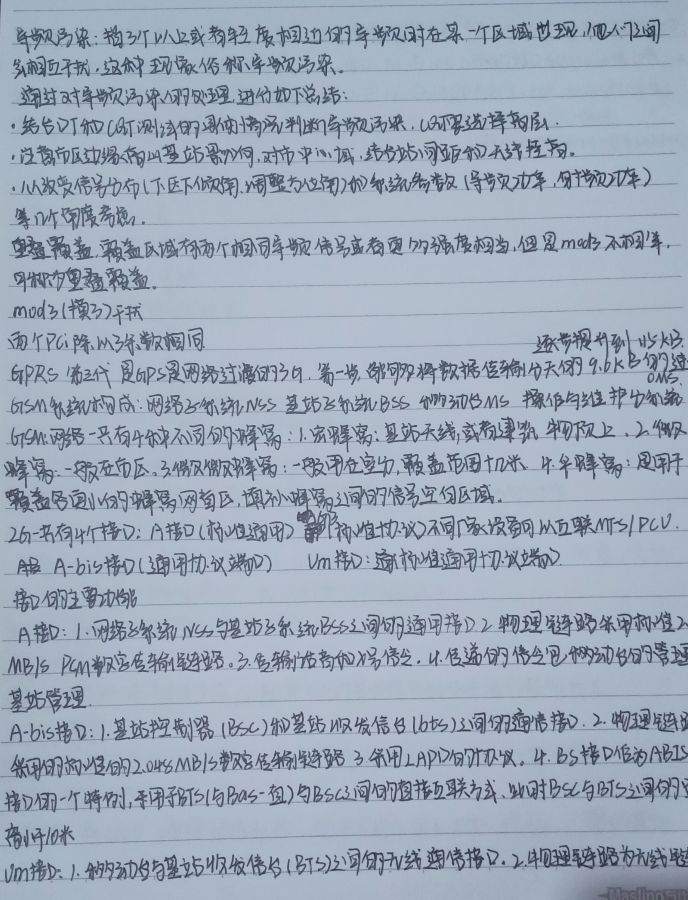 导频污染：指3个以上或者轻度相近的导频同时在某一个区域出现，他们之间
会相互干扰，这种现象俗称导频污染。
通过对导频污染的处理，进行如下总结：
·结合DT和CQT测试的具体情况判断导频污染，CQT要选择高层
·注意市区边缘高山基站影响，对市中心域，结合站间距和天线挂高。
·从改变信号分布(下压下倾角，调整方位角)和系统参数(导频功率，导频功率)
等几个角度考虑。
重叠覆盖，覆盖区域有两个相同导频信号或者更多的强度相当，但是mod3不相等，
可称为重叠覆盖。
mod3(模3)干扰
两个PCi除以3余数相同
逐步提升到115KB.
GPRS 第三代 是GPS是网络过渡的3G，第一步，能可够将数据传输分天的9.6KB的速
OMS.
GSM系统构成：网络子系统NSS 基站子系统BSS 移动台MS 操作与维护分系统
GSM网络一共有4种不同的蜂窝：1.宏蜂窝：基站天线，或者建筑物顶上，2.微
蜂窝：一般在市区，3.微微蜂窝：一般用在室内，覆盖范围十几米 4.伞蜂窝：是用于
覆盖各面小的蜂窝网盲区，填补蜂窝之间的信号空白区域.
2G一共有4个接口：A接口(标准通用) (标准协议)不同厂家设备可以互联MFS/PCU.
A-bis接口(通用协议端口) Um接口：标准通用协议端口
接口的主要功能
A接口：1.网络子系统NSS与基站子系统BSS之间的通用接口 2.物理链路采用标准2
MB/S PCM数字传输链路。3.传输话音和7号信令. 4.传递的信令包移动台的管理
基站管理.
A-bis接口：1.基站控制器(BSC)和基站收发信台(bts)之间的通信接口. 2.物理链路
采用的标准的2.048MB/S数字传输链路 3.采用LAPD的协议。4.BS接口作为ABIS
接口的一个特例，于用于BTS(与Bas-组)与BSC之间的直接互联方式，此时BSC与BTS之间的
离小于10米
Um接口：1.移动台与基站收发信台(BTS)之间的无线通信接口. 2.物理链路为无线链